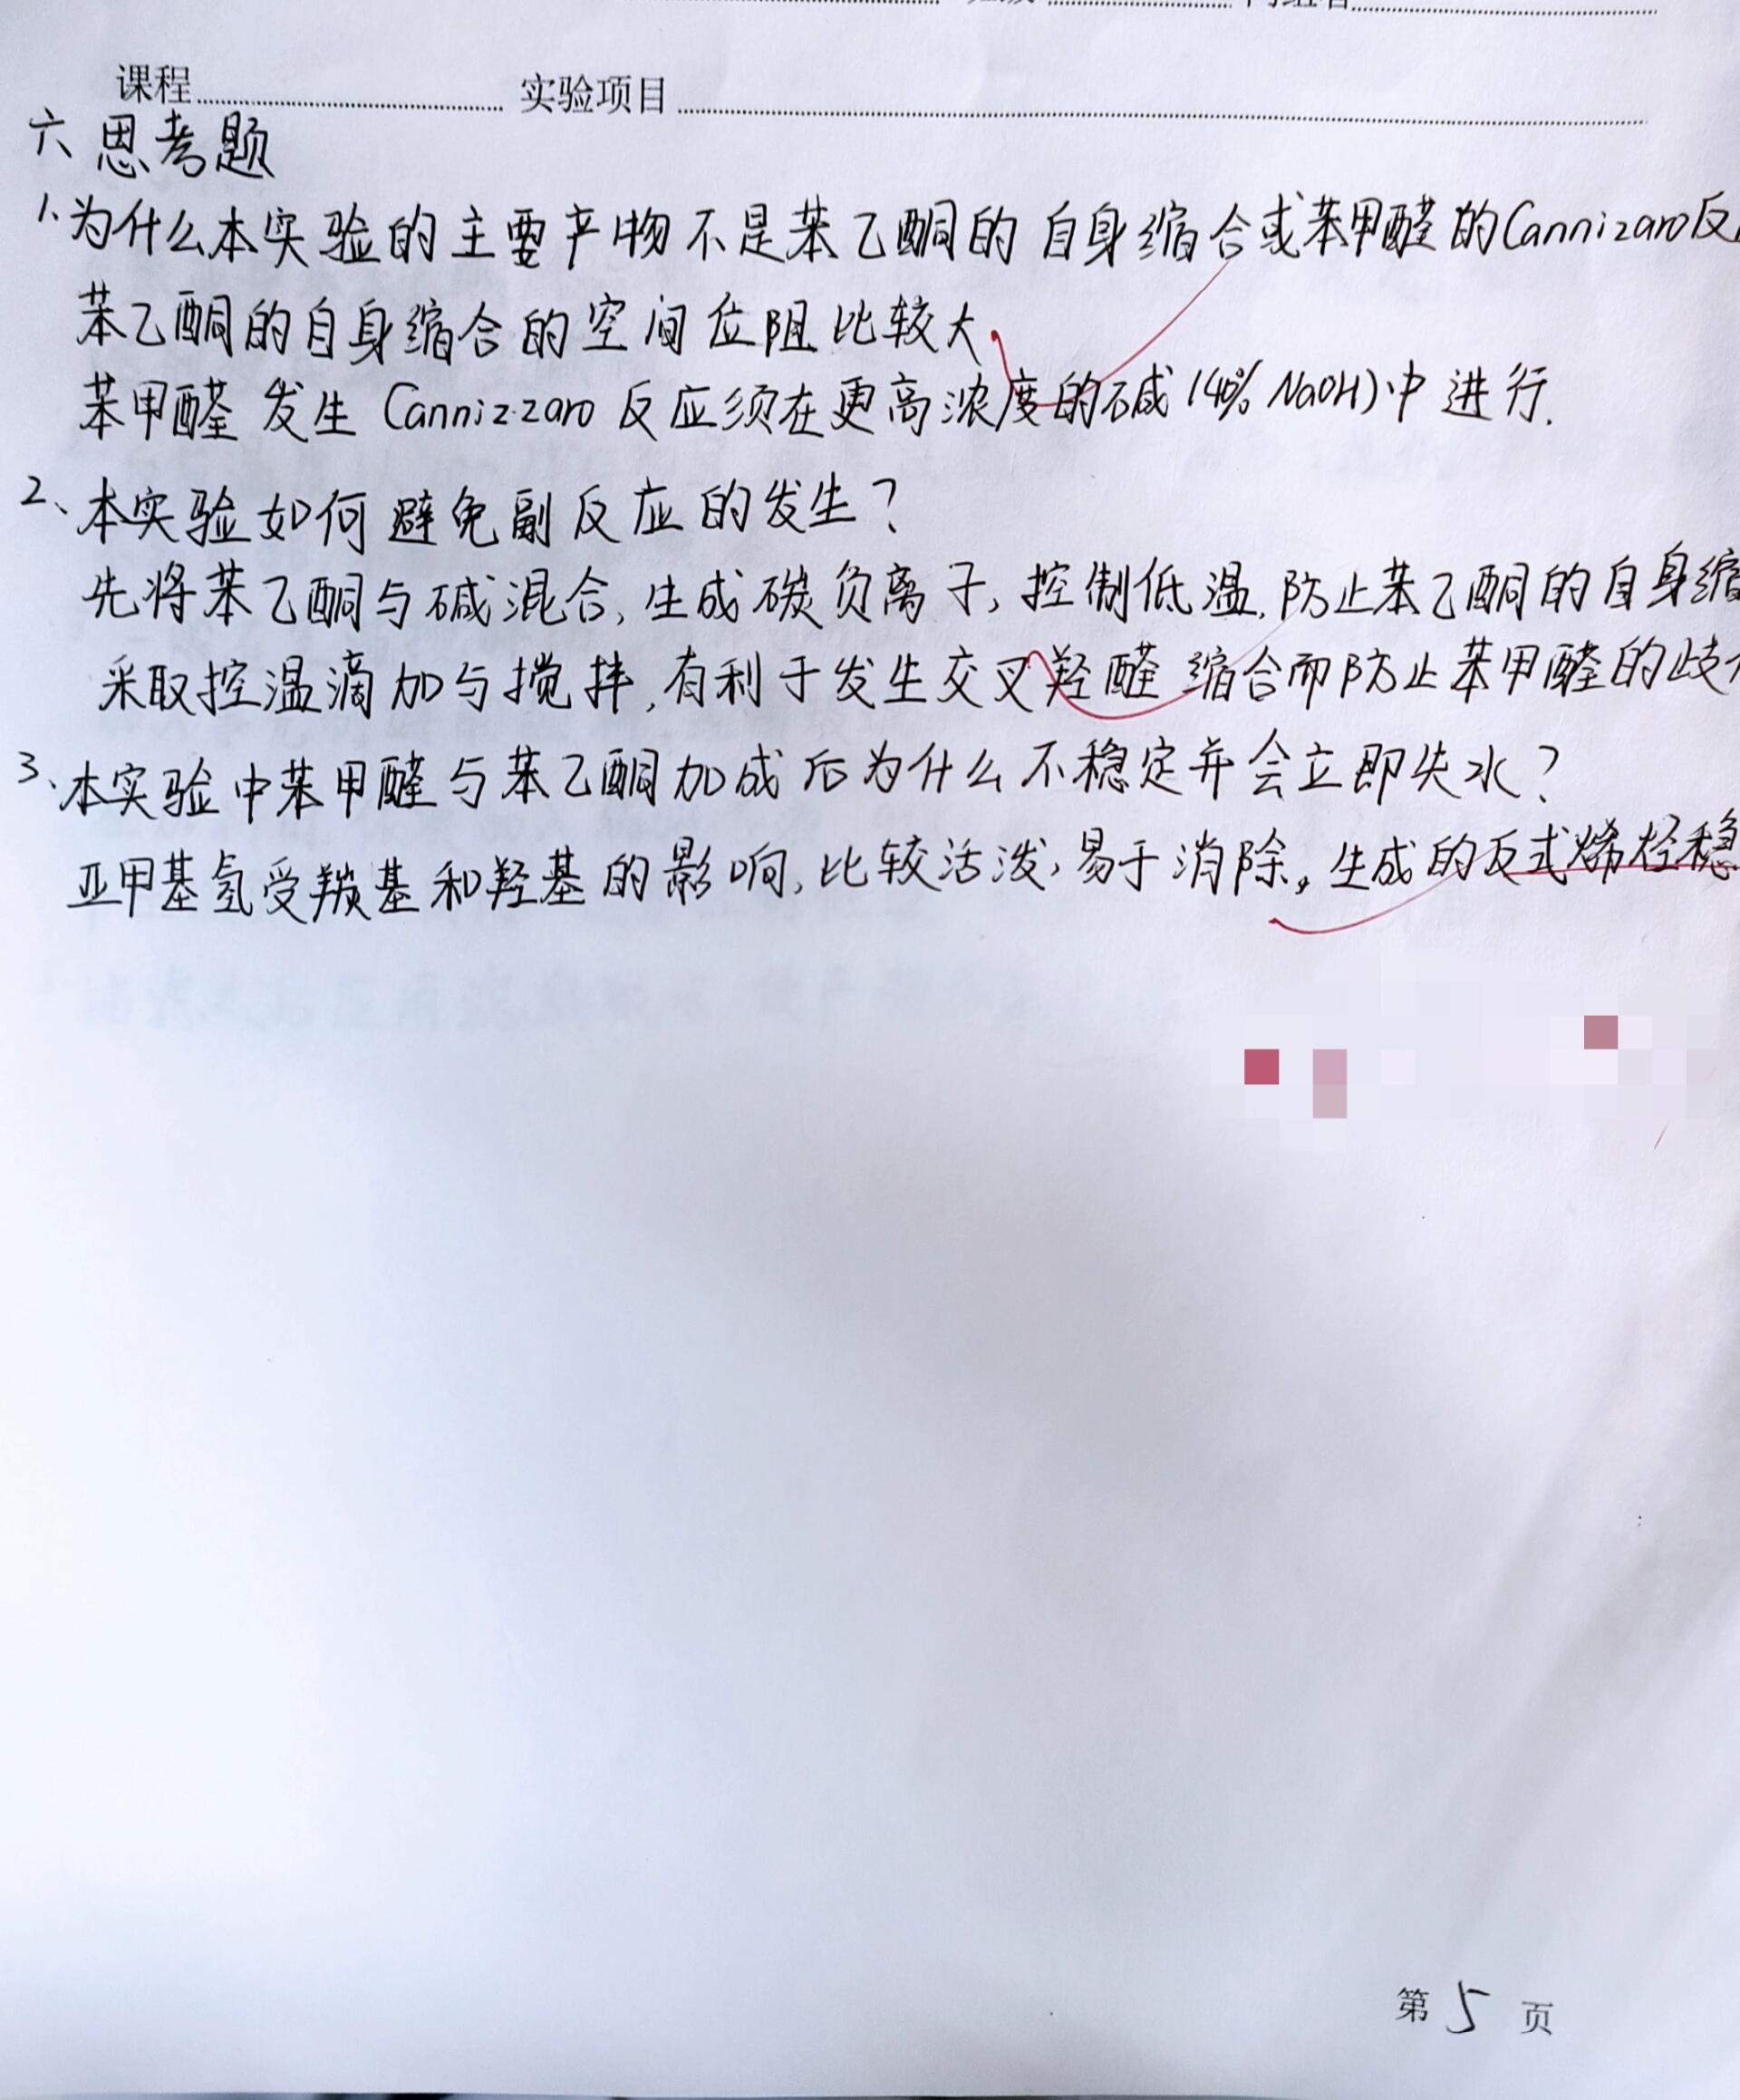 课程 实验项目
六 思考题
1、为什么本实验的主要产物不是苯乙酮的自身缩合或苯甲醛的Cannizaro反
苯乙酮的自身缩合的空间位阻比较大
苯甲醛发生Cannizzaro反应须在更高浓度的碱(40% NaOH)中进行.
2、本实验如何避免副反应的发生?
先将苯乙酮与碱混合,生成碳负离子,控制低温,防止苯乙酮的自身缩
采取控温滴加与搅拌,有利于发生交叉羟醛缩合而防止苯甲醛的歧
3、本实验中苯甲醛与苯乙酮加成后为什么不稳定并会立即失水?
亚甲基氢受羰基和羟基的影响,比较活泼,易于消除。生成的反式烯烃稳
第5页